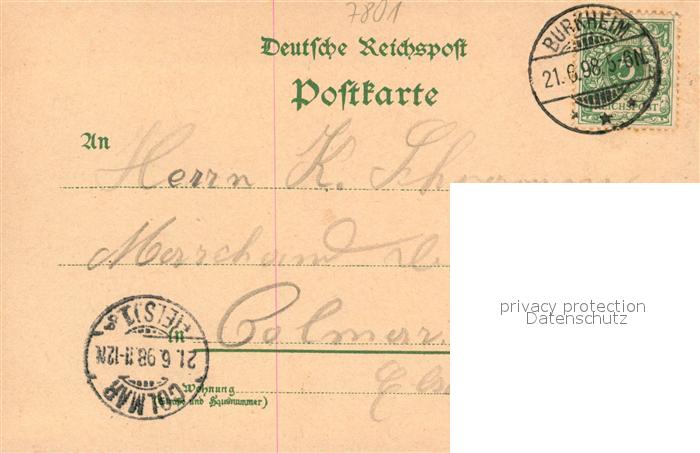 7801
BURKHEIM
21.6.98.5-6N.
5
REICHSPOST
Deutsche Reichspost
Postkarte
An
Herrn K.
Marchand
in Colmar i.
COLMAR (ELS) 1
21.6.98.11-12N
Wohnung
(Straße und Hausnummer)
privacy protection
Datenschutz